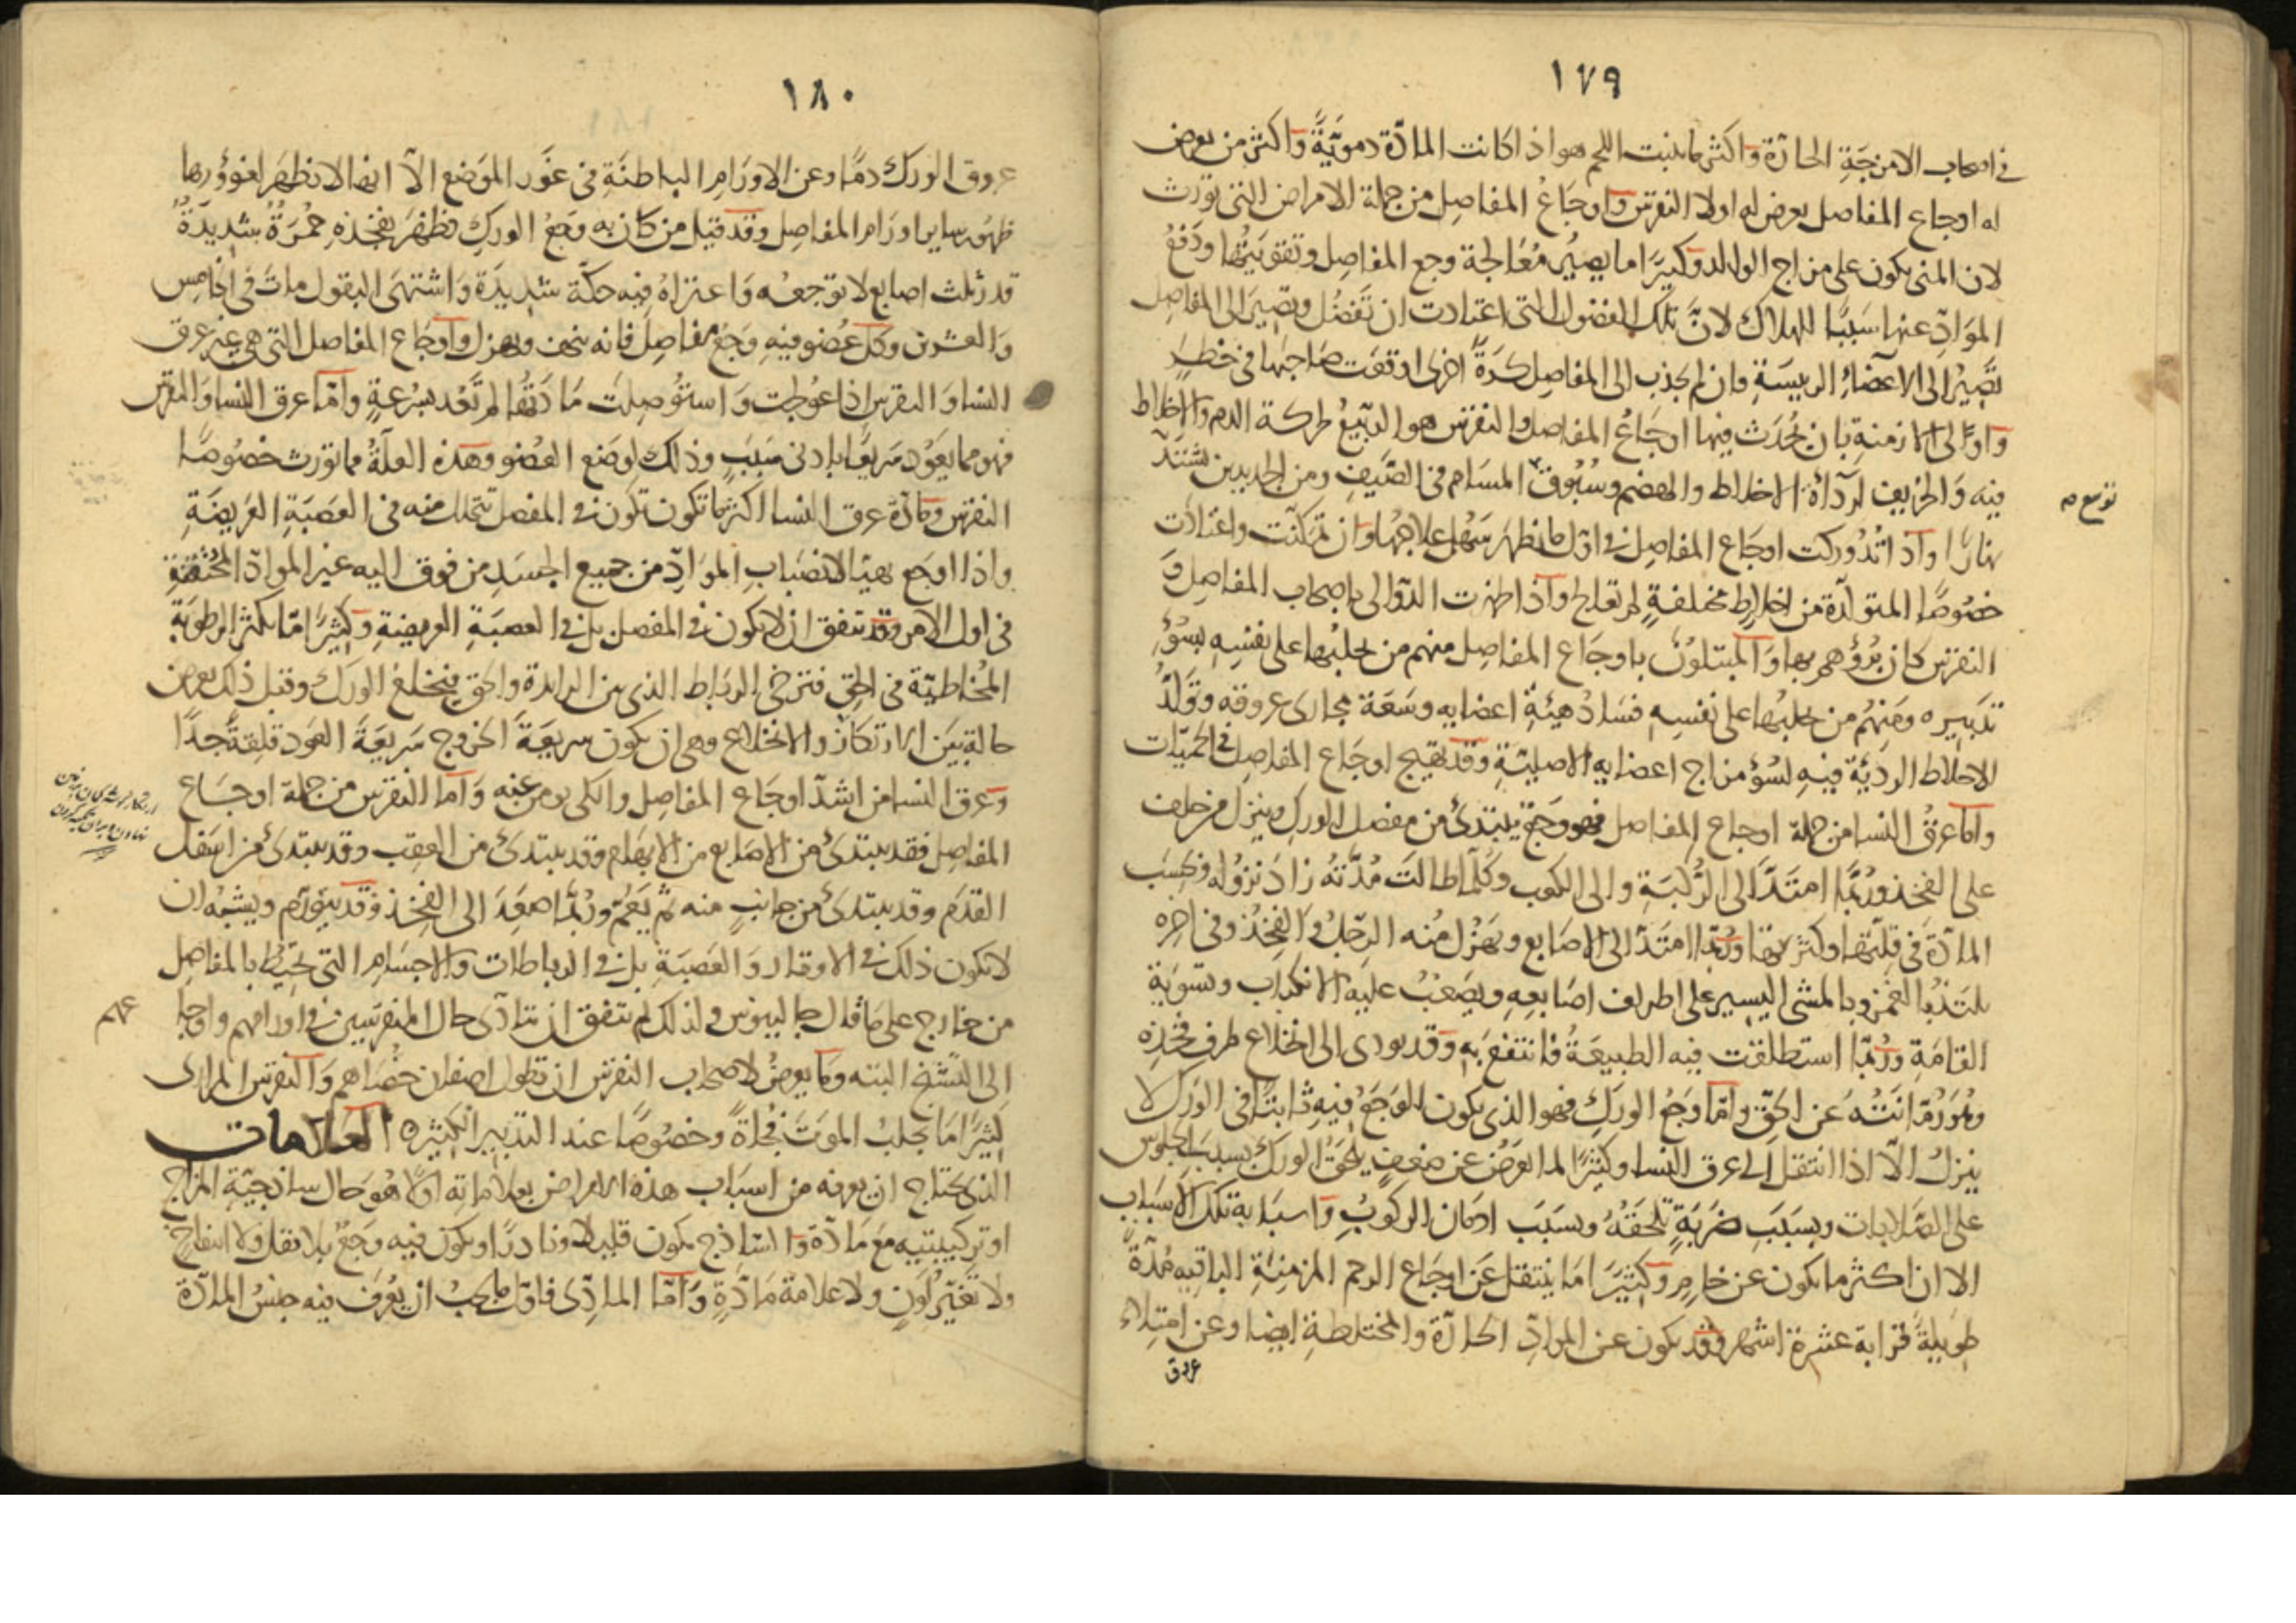 ١٧٩
في اصحاب الامزجة الحارّة واكثر ما ينبت اللحم هو اذا كانت المادّة دمويّةً واكثر من يعرض
له اوجاع المفاصل يعرض له اولا النقرس واوجاعُ المفاصِل من جملة الامراض التى تورث
لان المنى يكون على مزاج الوالد وكثيرًا ما يصير مُعَالجة وجع المفاصِل وتقويَتُها ودَفعُ
الموَادّ عنها سَببًا للهلاك لانَّ تلك الفضول التى اعتادت ان تَفضُل وتصِير الى المفاصِل
تصِيرُ الى الاعضَاءِ الريسَةِ فان لم يجذب الى المفاصِل كرَةً اخرى اوقعَت صَاحِبَها فى خطرٍ
واولى الازمنةِ بان يحْدَث فيها اوجَاعُ المفاصل والنقرس هو الربيعُ لحركة الدم والاخلاط
فيه وَالخريف لردآءةِ الاخلاط والهضم وسُبُوق المسَام فى الصَّيفِ ومن الحر الذين يشتدّ
توسع صح
نهارًا واذ اتُدُوركت اوجَاع المفاصِل فى اوّل ما يظهر سَهُل علاجها وان تمكنّت واعتادَت
خصُوصًا المتولّدة من اخلاطٍ مختلفةٍ لم تعالج واذا ظهرت الدوالى باصحاب المفاصِل وَ
النقرس كان بُرؤُهم بها وَالمبتلوُنَ باوجَاع المفاصِل منهم من يجلبُها على نفسِهِ لِسُوْءِ
تدبيره ومنهُم من يجلبُها على نفسِه فسَادُ هيئةِ اعضايه وسَعَة مجارى عروقه وتَولّدُ
الاخلاط الرديَّة فيهِ لسُوْءِ مزاج اعضايه الاصليّةِ وقد يهيج اوجَاع المفاصِل فى الحمَيّات
واما عرقُ النسا من جملة اوجاع المفاصل فهو وَجَع يبتدئُ من مفصل الورك وينزل من خلف
على الفخذ ورُبَّمَا امتَدَّ الى الرُّكبَةِ والى الكعب وكُلّما طالَت مُدَّتهُ زادَ نزوُله وبحسَب
المادّة فى قلّتها وكثرتها ورُبّما امتَدّ الى الاصَابع ويهزُل منه الرِّجلُ والفخِذ وفى اخِره
يلتَذّ بالغمز وبالمشى اليسِير على اطراف اصَابعِه ويصَعُبُ عليه الانكباب وتسوَية
القامَةِ ورُبّما استطلقت فيه الطبيعَةُ فانتفعَ بهِ وقد يودى الى انخلاع طرف فخذِه
وهُوَ رُمّانَتهُ عَن الحُقّ وامّا وَجَعُ الورِك فهو الذى يكون الوَجَعُ فيهِ ثابتًا فى الوَرك لا
ينزِلُ الّا اذا انتقل الى عرق النسا وكثيرًا ما يعرَضُ عن ضعفٍ يلحَقُ الورك بسببِ الجلوس
على الصَّلابات وبسَبَبِ ضربَةٍ تلحَقُهُ وبسَبَب ادمَان الركوبُ واسبَابه تلك الاسبَاب
الا ان اكثر ما يكون عن خامٍ وكثِيرًا ما ينتقل عَن اوجَاع الرحم المزمنة الباقيه مُدّةً
طويلةً قرابة عشرة اشهر وقد يكون عن الموادّ الحارّة والمختلطةِ ايضا وعن امتِلاء
عروق
١٨٠
عروق الورك دمًا وعن الاورَامِ الباطنَةِ فى غَور الموَضع الّا انها لا تظهَر لغؤُورها
ظهُور ساير اورَام المفاصِل وقد قيل من كان به وَجَعُ الورِك فظهرَ بفخِذهِ حُمْرَةٌ شديدَةٌ
قدر ثلث اصابع لا توجعُه وَاعتراهُ فيه حكّة شديدَة وَاشتهَى البقول ماتَ فى الخامِس
وَالعشرين وكل عُضو فيهِ وَجَعُ مفاصِل فانه ينحف ويهزل واوجَاع المفاصل التى هى غير عرق
النسا وَالنقرس اذا عُولجت وَاستُوصِلَت مَادّتُها لم تَعُد بسُرعةٍ وامّا عرق النسا وَالنقرس
فهو مما يعَود سَريعًا بادنى سَبَبٍ وذلك لوضَع العُضو وهَذه العلةُ مما تورث خصُوصًا
النقرس ومَادّة عرق النسا اكثر ما تكون تكون فى المفصل تتحلل منه فى العَصَبَةِ العَريضَةِ
واذا اوجَع هيّا لانصَبابِ الموَادّ من جَميع الجسَدِ من فوق اليه غير الموادّ المحتقنة
فى اول الامر وقد يتفق ان لا يكون فى المفصل بل فى العصبَةِ العريضةِ وكثيرًا مّا يكثر الرطوبَةِ
المُخاطيّة فى الحق فترخى الربَاط الذى بين الزايدة والحُقّ فينخلعُ الورَك وقبل ذلك يعرض
حالة بَين الارتكاز والانخلاع وهى ان يكون سريعَةَ الخروج سَريعَةَ العَود قلِقةً جدًّا
وعرق النسا من اشدّ اوجَاع المفاصِل والكى يومن عنه وَاما النقرس من جملة اوجَاع
المفاصِل فقد يبتدئُ من الاصَابع من الابهام وقد يبتدئ من العقِب وقد يبتدئ من اسَفل
القدَم وقد يبتدئ من جانبٍ منه ثم يَعُمّ ورُبمّا صعِدَ الى الفخِذ وقد يتوَرّم ويشبهُ ان
لا يكون ذلك فى الاوتار وَالعَصَبَةِ بل فى الرباطات وَالاجسَام التى تحيْطُ بالمفاصِل
من خارج على مَا قال جالينوس ولذلك لم يتفق ان يتادّى حال المنقرسين فى اورامهم واوجا
عهم
الى التشنج البته ومَا يعرضُ لاصحاب النقرس ان تطول اصفان خُصَاهم وَالنقرس المرارى
كثيرًا مَا يجلبُ الموَت فُجَاةً وخصُوصًا عند التدبير الكثيره العَلَامات
الذى يحتاج ان يعرفه من اسبَاب هذه الامراض بعلاماتِه اوّلًا هُوَ حَال ساذجيّةِ المزاج
او تركيبيتهِ مَعَ مَادّة والساذج يكون قليلا ونادرًا ويكون فيه وَجَعٌ بلا ثقل ولا انتفاخ
ولا تغيّر لَونٍ ولا علامة مَادّةٍ وَامّا المادِّى فاوّل ما يجبُ ان يعُرَف فيه جنسُ المادّة